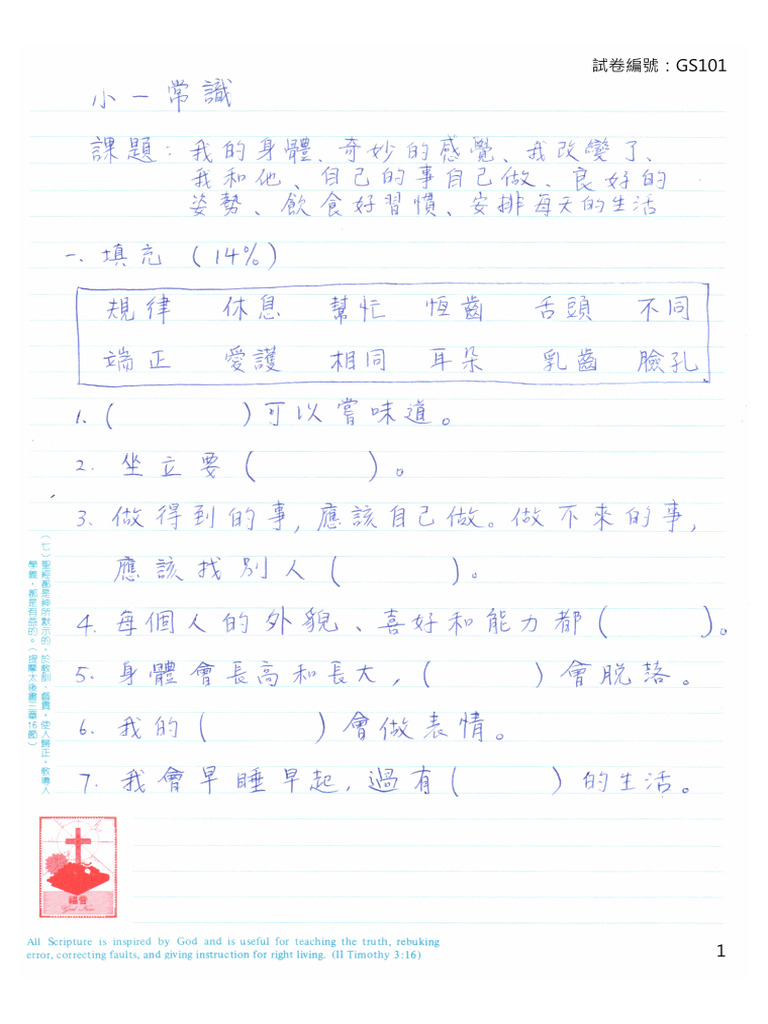 試卷編號：GS101
小一常識
課題：我的身體、奇妙的感覺、我改變了、
我和他、自己的事自己做、良好的
姿勢、飲食好習慣、安排每天的生活
一、填充（14%）
規律 休息 幫忙 恆齒 舌頭 不同
端正 愛護 相同 耳朵 乳齒 臉孔
1. (　　　　)可以嘗味道。
2. 坐立要(　　　　)。
3. 做得到的事，應該自己做。做不來的事，
應該找別人(　　　　)。
4. 每個人的外貌、喜好和能力都(　　　　)。
5. 身體會長高和長大，(　　　　)會脫落。
6. 我的(　　　　)會做表情。
7. 我會早睡早起，過有(　　　　)的生活。
（七）聖經都是神所默示的，於教訓、督責、使人歸正、教導人
學義，都是有益的。（提摩太後書三章16節）
福音
God Love
All Scripture is inspired by God and is useful for teaching the truth, rebuking
error, correcting faults, and giving instruction for right living. (II Timothy 3:16)
1